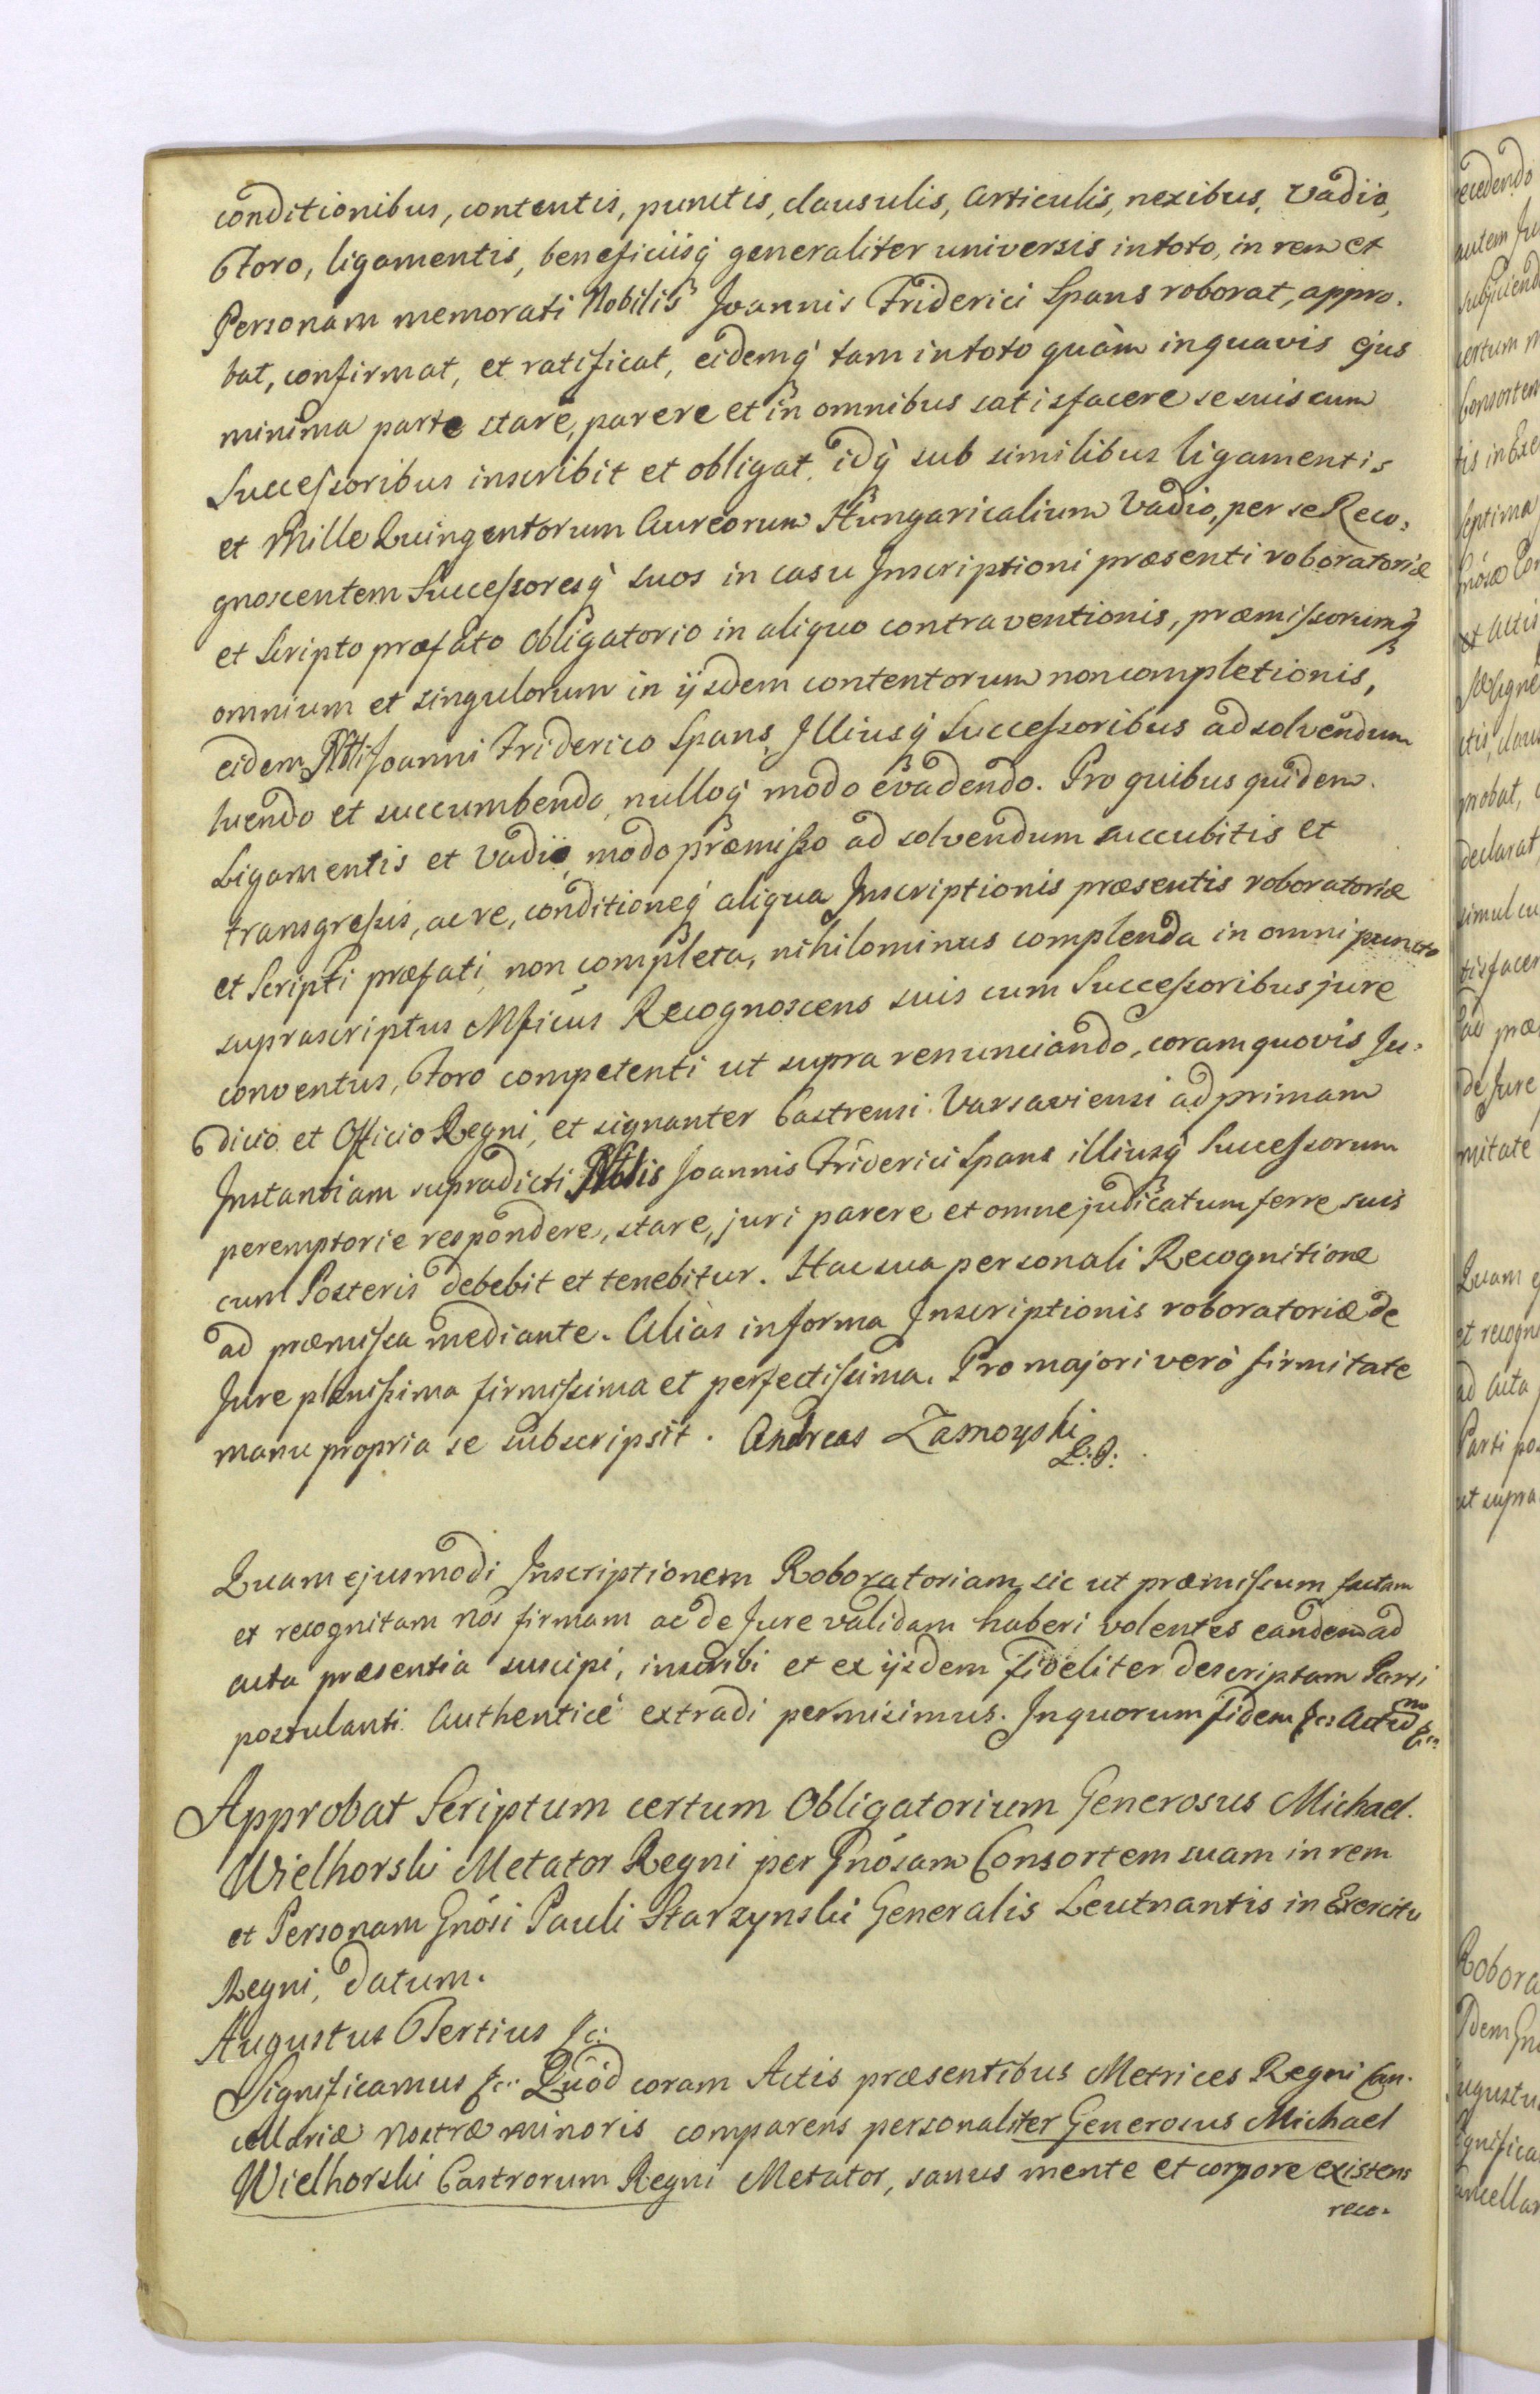 conditionibus, contentis, punctis, clausulis, articulis, nexibus, Vadio,
Foro, ligamentis, beneficiisq́ generaliter universis in toto, in rem et
Personam memorati Nobilis Joannis Friderici Spans roborat, appro-
bat, confirmat, et ratificat, eidemq́ tam in toto quàm in quavis ejus
minima parte stare, parere et in omnibus satisfacere se suis cum
Successoribus inscribit et obligat. idq́ sub similibus ligamentis
et Mille Quingentorum Aureorum Hungaricalium Vadio, per se Reco-
gnoscentem Successoresq́ suos in casu Inscriptioni præsenti roboratoriæ
et Scripto præfato Obligatorio in aliquo contraventionis, præmissorumq́
omnium et singulorum in ijsdem contentorum non completionis,
eidem Nbli Joanni Friderico Spans, Illiusq́ Successoribus ad solvendum
luendo et succumbendo, nulloq́ modo evadendo. Pro quibus quidem
Ligamentis et Vadio, modo præmisso ad solvendum succubitis et
transgressis, ac re, conditioneq́ aliqua Inscriptionis præsentis roboratoriæ
et Scripti præfati, non completa, nihilominus complenda in omni puncto
suprascriptus Mficus Recognoscens suis cum Successoribus jure
conventus, Foro competenti ut supra renunciando, coram quovis Ju-
dicio et Officio Regni, et signanter Castrensi Varsaviensi ad primam
Instantiam supradicti Nblis Joannis Friderici Spans illiusq́ Successorum
peremptorie respondere, stare, juri parere et omne judicatum ferre suis
cum Posteris debebit et tenebitur. Hac sua personali Recognitione
ad præmissa mediante. Aliàs in forma Inscriptionis roboratoriæ de
Jure plenissima firmissima et perfectissima. Pro majori verò firmitate
manu propria se subscripsit. Andreas Zamoyski
L:S:
Quam ejusmodi Inscriptionem Roboratoriam sic ut præmissum factam
et recognitam Nos firmam ac de Jure validam haberi volentes eandem ad
acta præsentia suscipi, inscribi et ex ijsdem fideliter descriptam Parti
postulanti Authenticè extradi permisimus. In quorum fidem &c: Actum &c:
Approbat Scriptum certum Obligatorium Generosus Michael
Wielhorski Metator Regni per Gnosam Consortem suam in rem
et Personam Gnosi Pauli Starzynski Generalis Leutnantis in Exercitu
Regni, datum.
Augustus Tertius &c:
Significamus &c: Quod coram Actis præsentibus Metrices Regni Can-
cellariæ Nostræ minoris comparens personaliter Generosus Michael
Wielhorski Castrorum Regni Metator, sanus mente et corpore existens
reco-